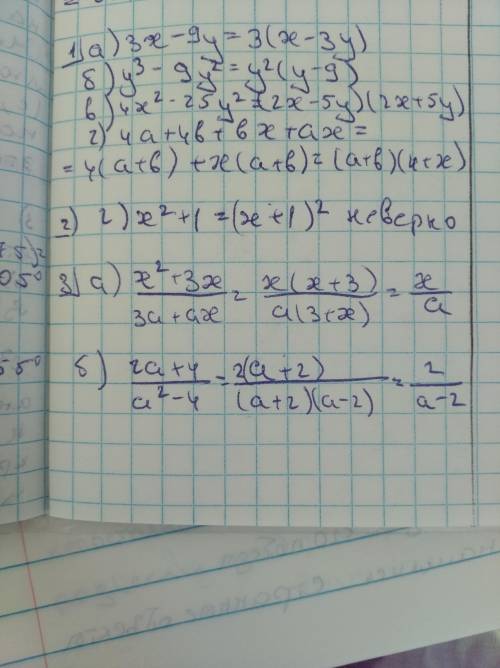 1) а) 3x - 9y = 3(x - 3y)
б) y³ - 9y² = y²(y - 9)
в) 4x² - 25y² = (2x - 5y)(2x + 5y)
г) 4a + 4в + вx + ax =
= 4(a + в) + x(a + в) = (a + в)(4 + x)
2) 2) x² + 1 = (x + 1)² неверно
3) а) x² + 3x / 3a + ax = x(x + 3) / a(3 + x) = x / a
б) 2a + 4 / a² - 4 = 2(a + 2) / (a + 2)(a - 2) = 2 / a - 2